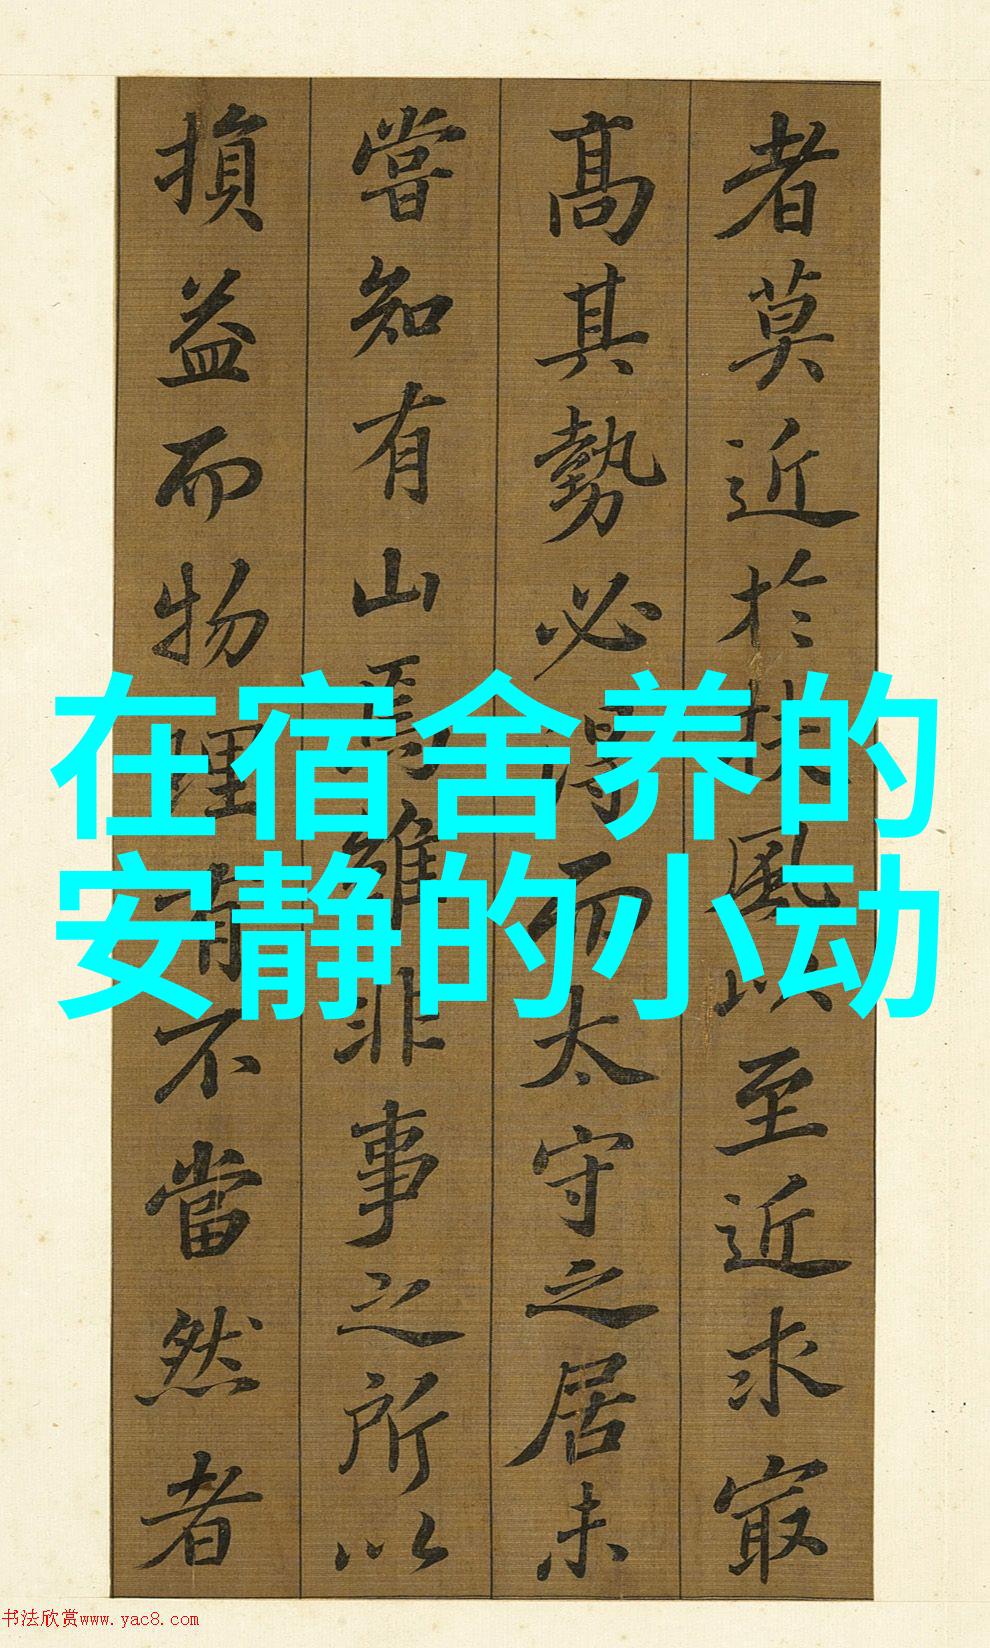 者莫近於扶風以至近求冣
髙其勢必得而太守之居未
嘗知有山焉雖非事之所以
損益而物理有不當然者
在宿舍养的
安静的小动
书法欣赏www.yac8.com